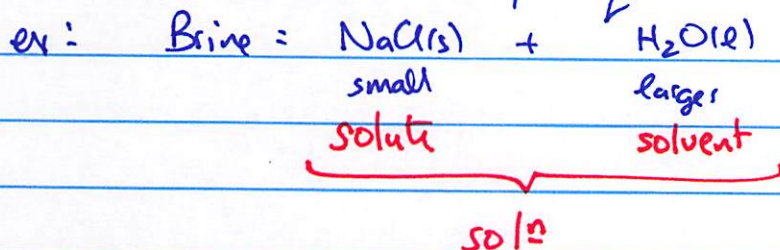 ex: Brine = NaCl(s) + H₂O(l)
small larger
solute solvent
solⁿ